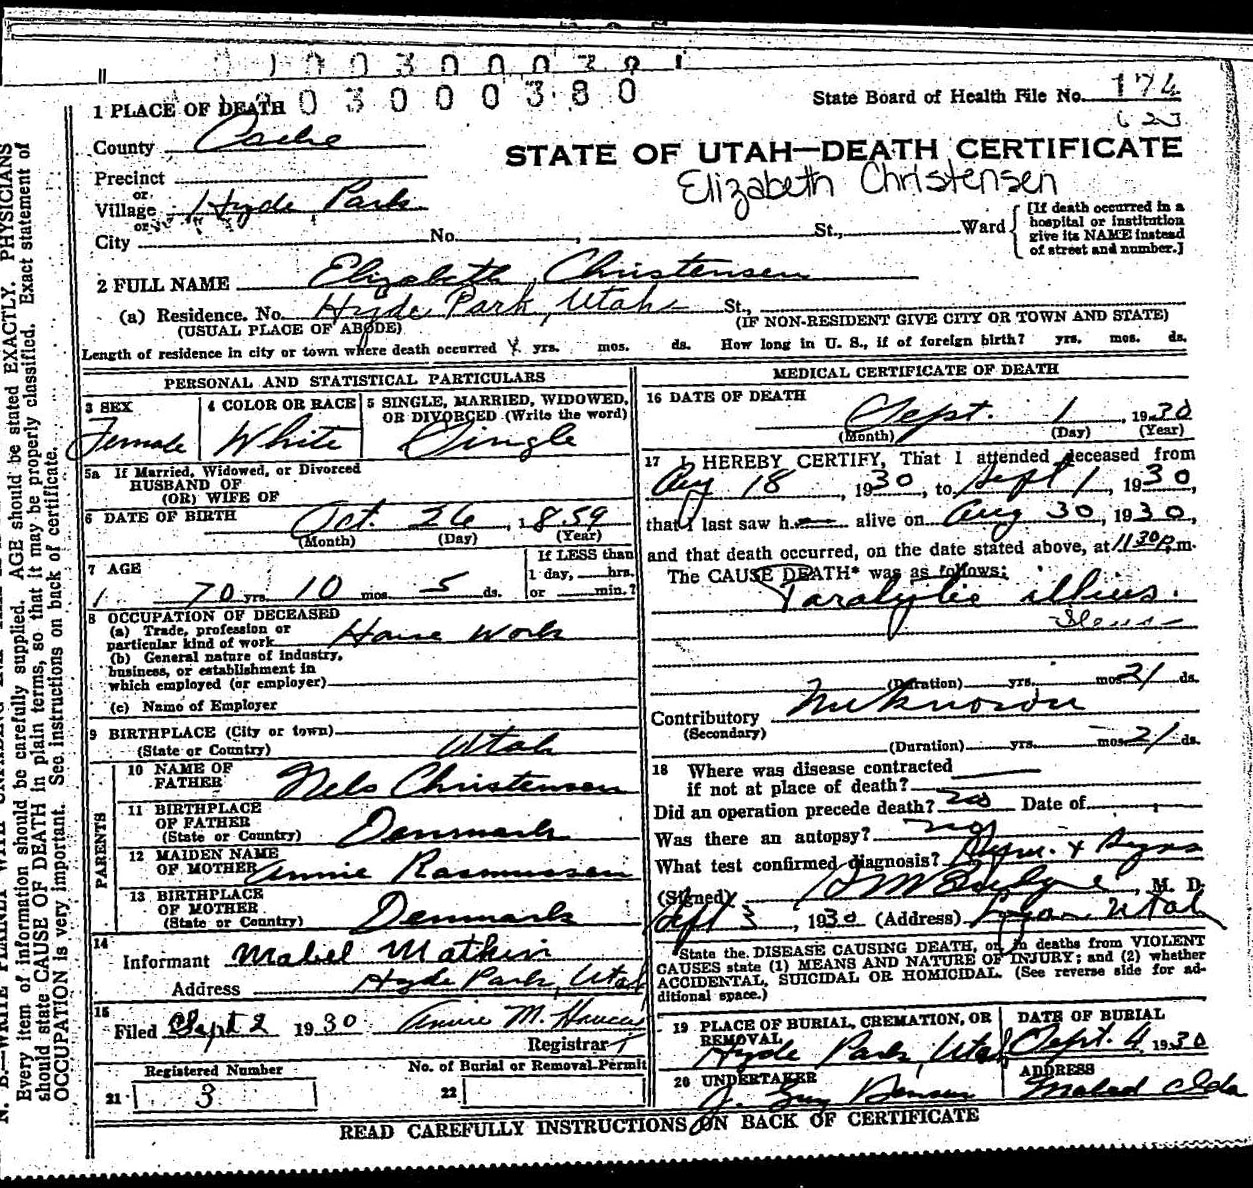 0 3 0 0 0 3 8 0
1 PLACE OF DEATH
State Board of Health File No. 174
County Cache
STATE OF UTAH—DEATH CERTIFICATE
Precinct
or
Elizabeth Christensen
Village Hyde Park
or
City No. St., Ward
[If death occurred in a hospital or institution give its NAME instead of street and number.]
2 FULL NAME Elizabeth Christensen
(a) Residence. No. Hyde Park, Utah St.,
(USUAL PLACE OF ABODE) (IF NON-RESIDENT GIVE CITY OR TOWN AND STATE)
Length of residence in city or town where death occurred yrs. mos. ds. How long in U. S., if of foreign birth? yrs. mos. ds.
PERSONAL AND STATISTICAL PARTICULARS
3 SEX
Female
4 COLOR OR RACE
White
5 SINGLE, MARRIED, WIDOWED, OR DIVORCED (Write the word)
Single
5a If Married, Widowed, or Divorced
HUSBAND OF
(OR) WIFE OF
6 DATE OF BIRTH Oct. 26, 1859
(Month) (Day) (Year)
7 AGE
70 yrs. 10 mos. 5 ds.
If LESS than
1 day, hrs.
or min.?
8 OCCUPATION OF DECEASED
(a) Trade, profession or
particular kind of work House Work
(b) General nature of industry,
business, or establishment in
which employed (or employer)
(c) Name of Employer
9 BIRTHPLACE (City or town)
(State or Country) Utah
PARENTS
10 NAME OF
FATHER Nels Christensen
11 BIRTHPLACE
OF FATHER
(State or Country) Denmark
12 MAIDEN NAME
OF MOTHER Annie Rasmussen
13 BIRTHPLACE
OF MOTHER
(State or Country) Denmark
14
Informant Mabel Matkin
Address Hyde Park, Utah
15
Filed Sept 2 1930 Annie M.
Registrar
Registered Number
21 3
No. of Burial or Removal Permit
22
MEDICAL CERTIFICATE OF DEATH
16 DATE OF DEATH
Sept. 1, 1930
(Month) (Day) (Year)
17 I HEREBY CERTIFY, That I attended deceased from
Aug 18, 1930, to Sept 1, 1930,
that I last saw h alive on Aug 30, 1930,
and that death occurred, on the date stated above, at 1130 P.m.
The CAUSE DEATH* was as follows:
Paralytic illius.
Ileus
(Duration) yrs. mos. 21 ds.
Contributory Unknown
(Secondary)
(Duration) yrs. mos. 21 ds.
18 Where was disease contracted
if not at place of death?
Did an operation precede death? no Date of
Was there an autopsy? no
What test confirmed diagnosis?
(Signed) , M. D.
Sept 3, 1930 (Address) Logan Utah
*State the DISEASE CAUSING DEATH, or, in deaths from VIOLENT
CAUSES state (1) MEANS AND NATURE OF INJURY; and (2) whether
ACCIDENTAL, SUICIDAL OR HOMICIDAL. (See reverse side for ad-
ditional space.)
19 PLACE OF BURIAL, CREMATION, OR
REMOVAL
Hyde Park, Utah
DATE OF BURIAL
Sept. 4 1930
20 UNDERTAKER
ADDRESS
READ CAREFULLY INSTRUCTIONS ON BACK OF CERTIFICATE
Every item of information should be carefully supplied. AGE should be stated EXACTLY. PHYSICIANS
should state CAUSE OF DEATH in plain terms, so that it may be properly classified. Exact statement of
OCCUPATION is very important. See instructions on back of certificate.